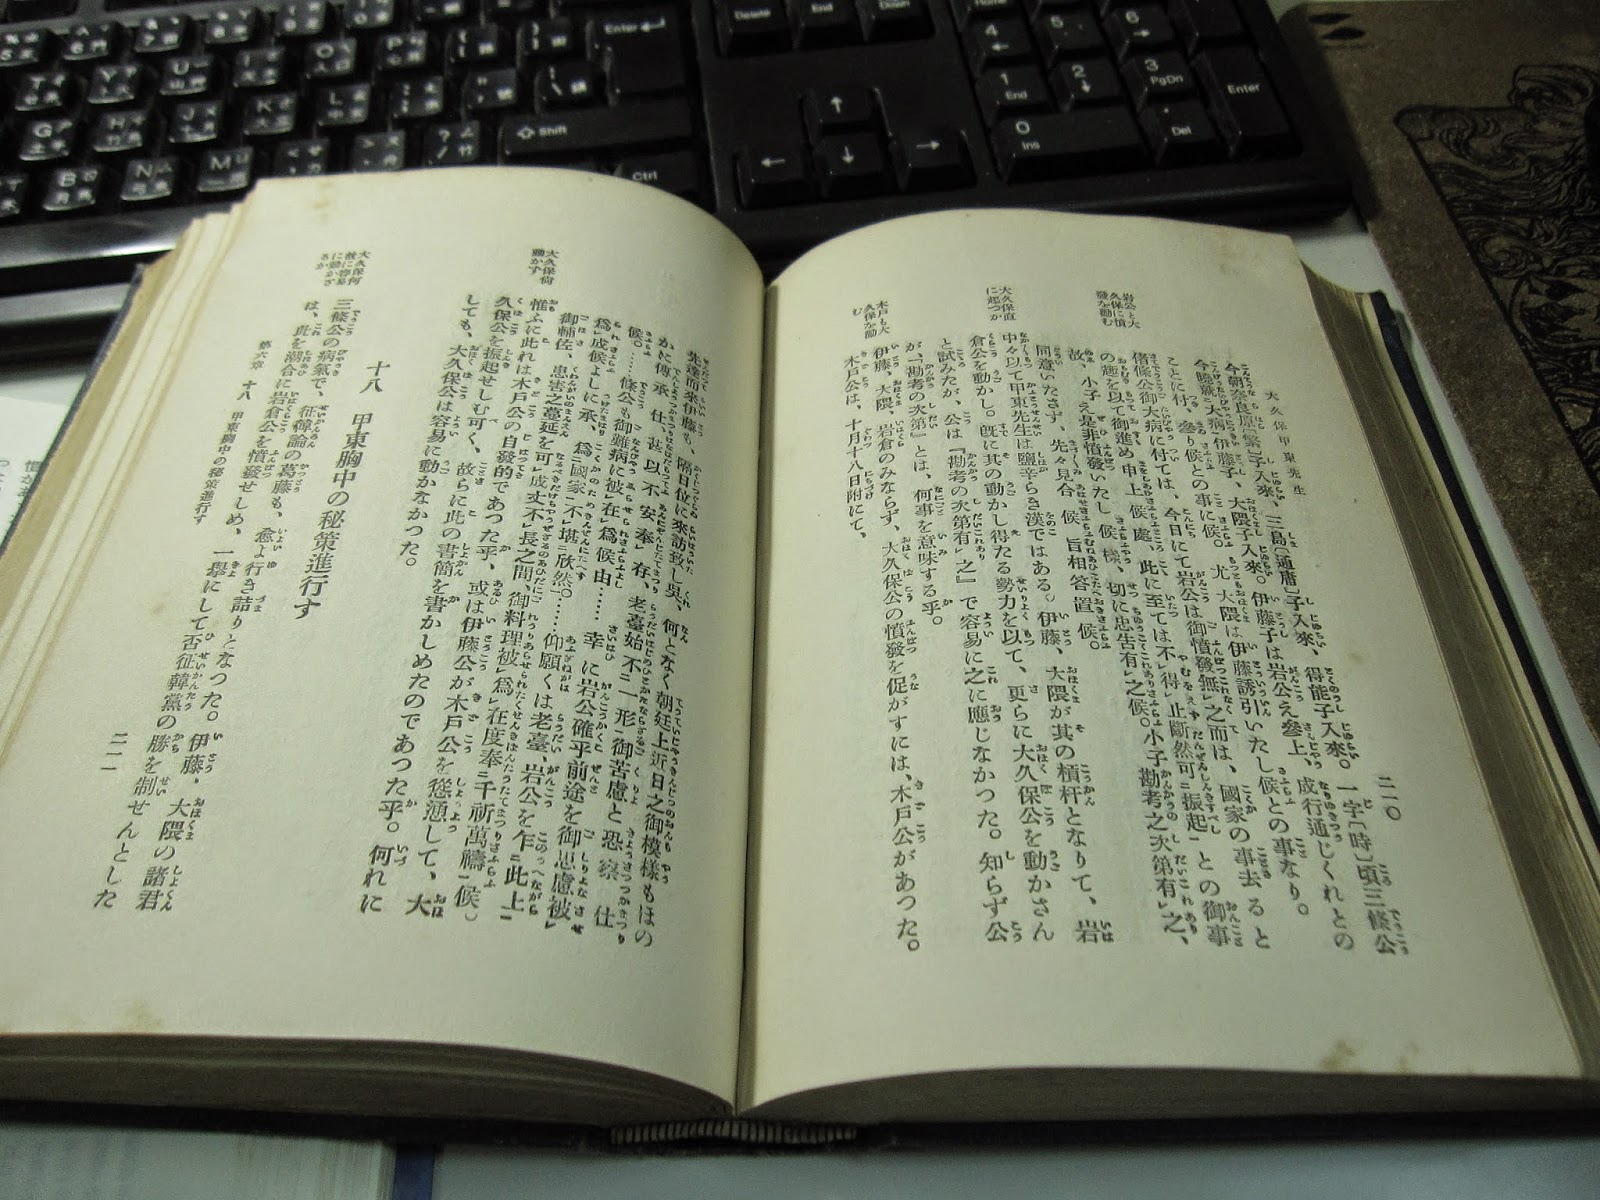 大久保甲東先生
二一〇
今朝奈良原〔繁〕子入來、三島〔通庸〕子入來、得能子入來。一字〔時〕頃三條公
今曉就二大病一伊藤子、大隈子入來。伊藤子は岩公え參上、成行通じくれとの
ことに付、參り候との事に候。尤大隈は伊藤誘引いたし候との事なり。
偕條公御大病に付ては、今日にて岩公は御憤發無レ之而は、國家の事去ると
の趣を以て御進め申上候處、此に至ては不レ得レ止斷然可二振起一との御事
故、小子え是非憤發いたし候樣、切に忠告有レ之候。小子勘考之次第有レ之、
同意いたさず、先々見合候旨相答置候。
岩公と大
久保に憤
發を勸む
中々以て甲東先生は鹽辛らき漢ではある。伊藤、大隈が其の槓杆となりて、岩
倉公を動かし。既に其の動かし得たる勢力を以て、更らに大久保公を動かさん
と試みたが、公は『勘考の次第有レ之』で容易に之に應じなかつた。知らず公
が『勘考の次第』とは、何事を意味する乎。
大久保直
に起つか
伊藤、大隈、岩倉のみならず、大久保公の憤發を促がすには、木戸公があつた。
木戸公は、十月十八日附にて、
木戸も大
久保を勸
む
先達而來伊藤も、隔日位に來訪致し吳、何となく朝廷上近日之御模樣もほの
かに傳承仕、甚以不安奉レ存、老臺始不二一形一御苦慮と恐察仕
候。……條公も御難病に被レ在レ爲候由……幸に岩公確乎前途を御思慮被レ
爲レ成候よしに承、爲二國家一不レ堪二欣然一。……仰願くは老臺、岩公を乍二此上一
御輔佐、患害之蔓延を可レ成丈不レ長之間、御料理被レ爲レ在度奉二千祈萬禱一候。
惟ふに此れは木戸公の自發的であつた乎、或は伊藤公が木戸公を慫慂して、大
久保公を振起せしむ可く、故らに此の書簡を書かしめたのであつた乎。何れに
しても、大久保公は容易に動かなかつた。
大久保尙
動かず
十八 甲東胸中の秘策進行す
三條公の病氣で、征韓論の葛藤も、愈よ行き詰りとなつた。伊藤、大隈の諸君
は、此を潮合に岩倉公を憤發せしめ、一擧にして否征韓黨の勝を制せんとした
大久保何
故に容易
に動かざ
るか
第六章 十八 甲東胸中の秘策進行す
二一一
Enter
Shift
Ctrl
Delete
End
Down
Home
4
5
6
1
End
2
3
PgDn
0
Ins
Del
Enter